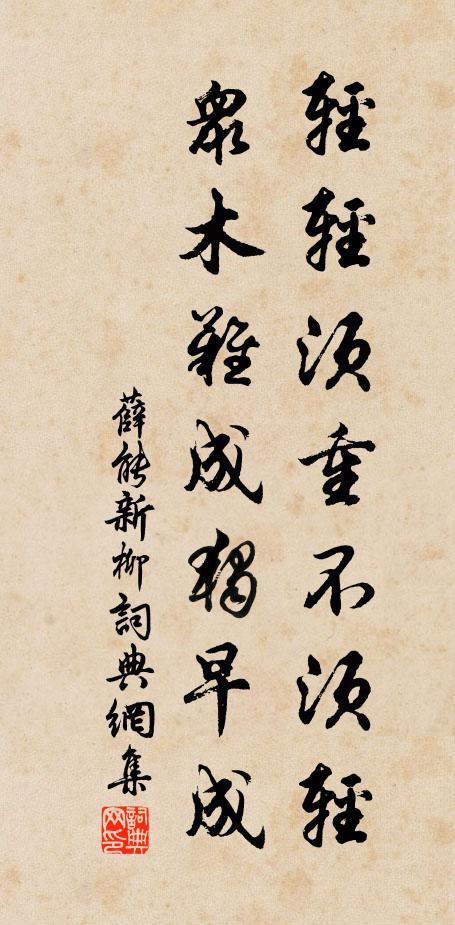 輕輕須重不須輕
衆木難成獨早成
薛能新柳詞典網集
詞典网印